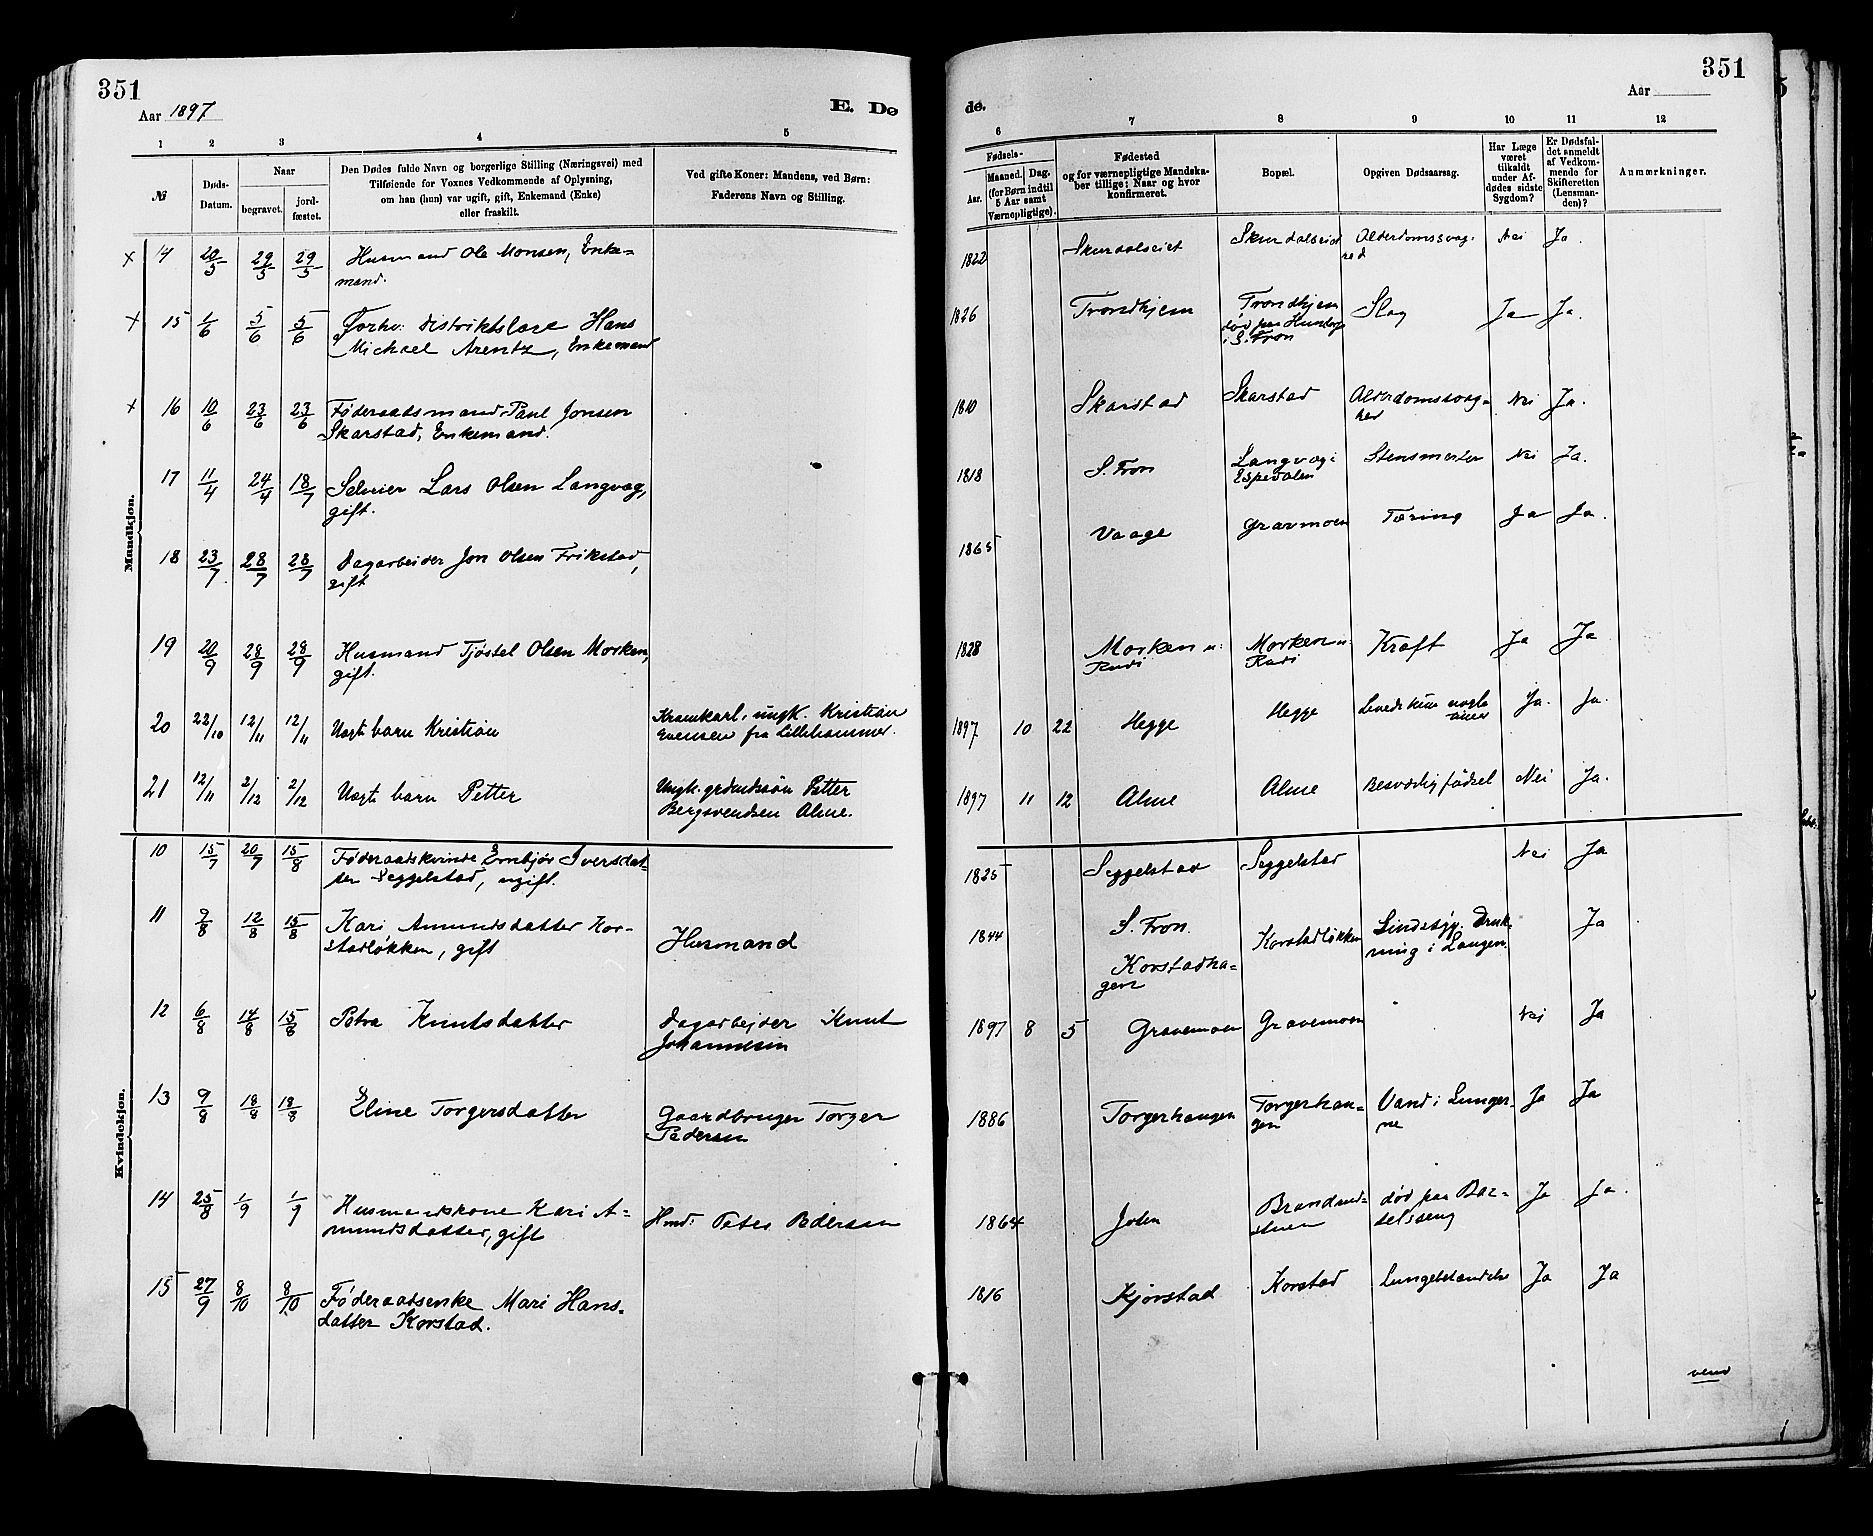 351
Aar 1897
E. Dø
1
2
3
4
5
№
Døds-
Datum.
Naar
begravet.
jord-
fæstet.
Den Dødes fulde Navn og borgerlige Stilling (Næringsvei) med
Tilføiende for Voxnes Vedkommende af Oplysning,
om han (hun) var ugift, gift, Enkemand (Enke)
eller fraskilt.
Ved gifte Koner: Mandens, ved Børn:
Faderens Navn og Stilling.
Mandkjøn.
x 14 20/5 29/5 29/5 Husmand Ole Monsen, Enke-
mand.
x 15 1/6 5/6 5/6 Forhv: Distriktslæge Hans
Michael Arentz, Enkemand
x 16 10/6 23/6 23/6 Føderaadsmand Paul Jonsen
Skarstad, Enkemand.
17 11/4 24/4 18/7 Selveier Lars Olsen Langvag,
gift.
18 23/7 28/7 28/7 Dagarbeider Jon Olsen Frikstad,
gift
19 20/9 28/9 28/9 Husmand Tjøstel Olsen Morken,
gift.
20 22/10 12/11 12/11 Uegte barn Kristian
Kramkarl, ungk. Kristian
Evensen fra Lillehammer.
21 12/11 2/12 2/12 Uegte barn Petter
Ungk. grdmdssøn Petter
Bergsvendsen Alme.
Kvindekjøn.
10 15/7 20/7 15/8 Føderaadskvinde Embjør Iversdat-
ter Seggelstad, ugift.
11 9/8 12/8 15/8 Kari Amundsdatter Kor-
stadløkken, gift
Husmand
12 6/8 14/8 15/8 Petra Knutsdatter
Dagarbejder Knut
Johannesen
13 9/8 18/8 18/8 Eline Torgersdatter
Gaardbruger Torger
Pedersen
14 25/8 1/9 1/9 Husmandskone Kari A-
mundsdatter, gift
Hmd: Peter Pedersen
15 27/9 8/10 8/10 Føderaadsenke Mari Hans-
datter Korstad.
351
Aar
de.
6
7
8
9
10
11
12
Fødsels-
Aar.
Maaned.
Dag.
(for Børn indtil
5 Aar samt
Værnepligtige).
Fødested
og for værnepligtige Mandska-
ber tillige: Naar og hvor
konfirmeret.
Bopæl.
Opgiven Dødsaarsag.
Har Læge
været
tilkaldt
under Af-
dødes sidste
Sygdom?
Er Dødsfal-
det anmeldt
af Vedkom-
mende for
Skifteretten
(Lensman-
den)?
Anmærkninger.
1822 Skurdalseiet Skurdalseiet Alderdomssvag-
hed Nei Ja.
1826 Trondhjem Trondhjem
død paa
i S. Fron Slag Ja Ja.
1810 Skarstad Skarstad Alderdomssvag-
hed Nei Ja.
1818 S. Fron Langvag i
Espedalen Stensmerter Nei Ja.
1865 Vaage Gravmoen Tæring Ja Ja.
1828 Morken u:
Rudi Morken u:
Rudi Kræft Ja Ja
1897 10 22 Hegge Hegge Levede kun nogle
timer Ja. Ja.
1897 11 12 Alme Alme Besværlig fødsel Nei Ja.
1825 Seggelstad Seggelstad Nei Ja
1844 S. Fron.
Korstadha-
gen Korstadløkken Sindssyg. Druk-
ning i Laagen. Ja
1897 8 5 Gravemoen Gravemoen Nei Ja
1886 Torgerhaugen Torgerhau-
gen Vand i Lunger-
ne Ja Ja
1864 Joten død paa Bar-
selsseng Ja Ja.
1816 Kjørstad Korstad Lungebetændelse Ja Ja
vend